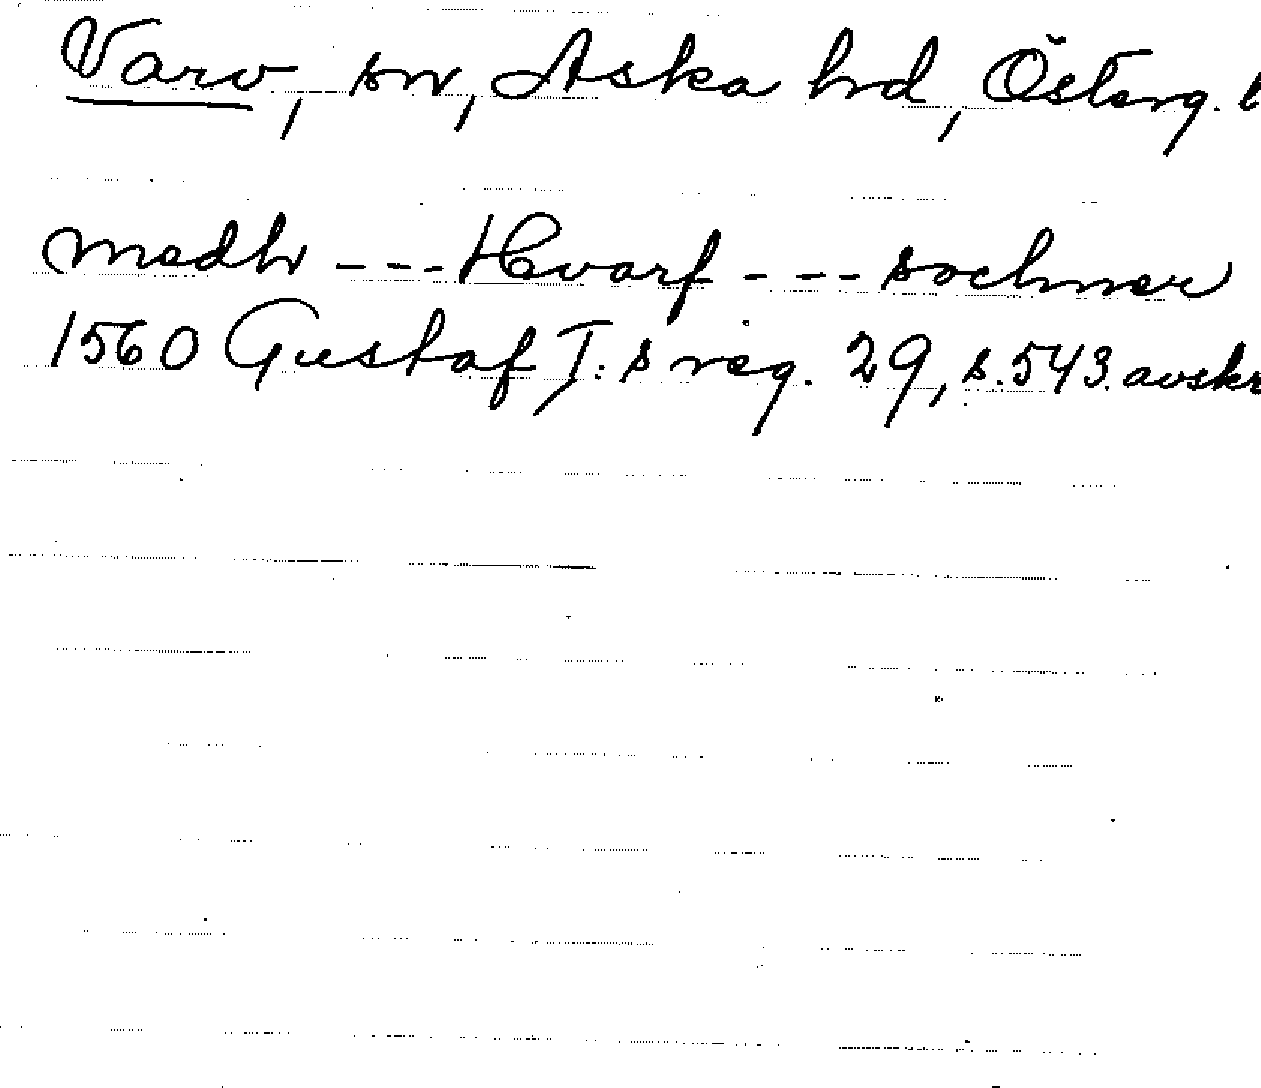 Varv, sn, Aska hd, Österg. l
medh --- Hvarf --- sochner
1560 Gustaf I:s reg. 29, s. 543. avskr